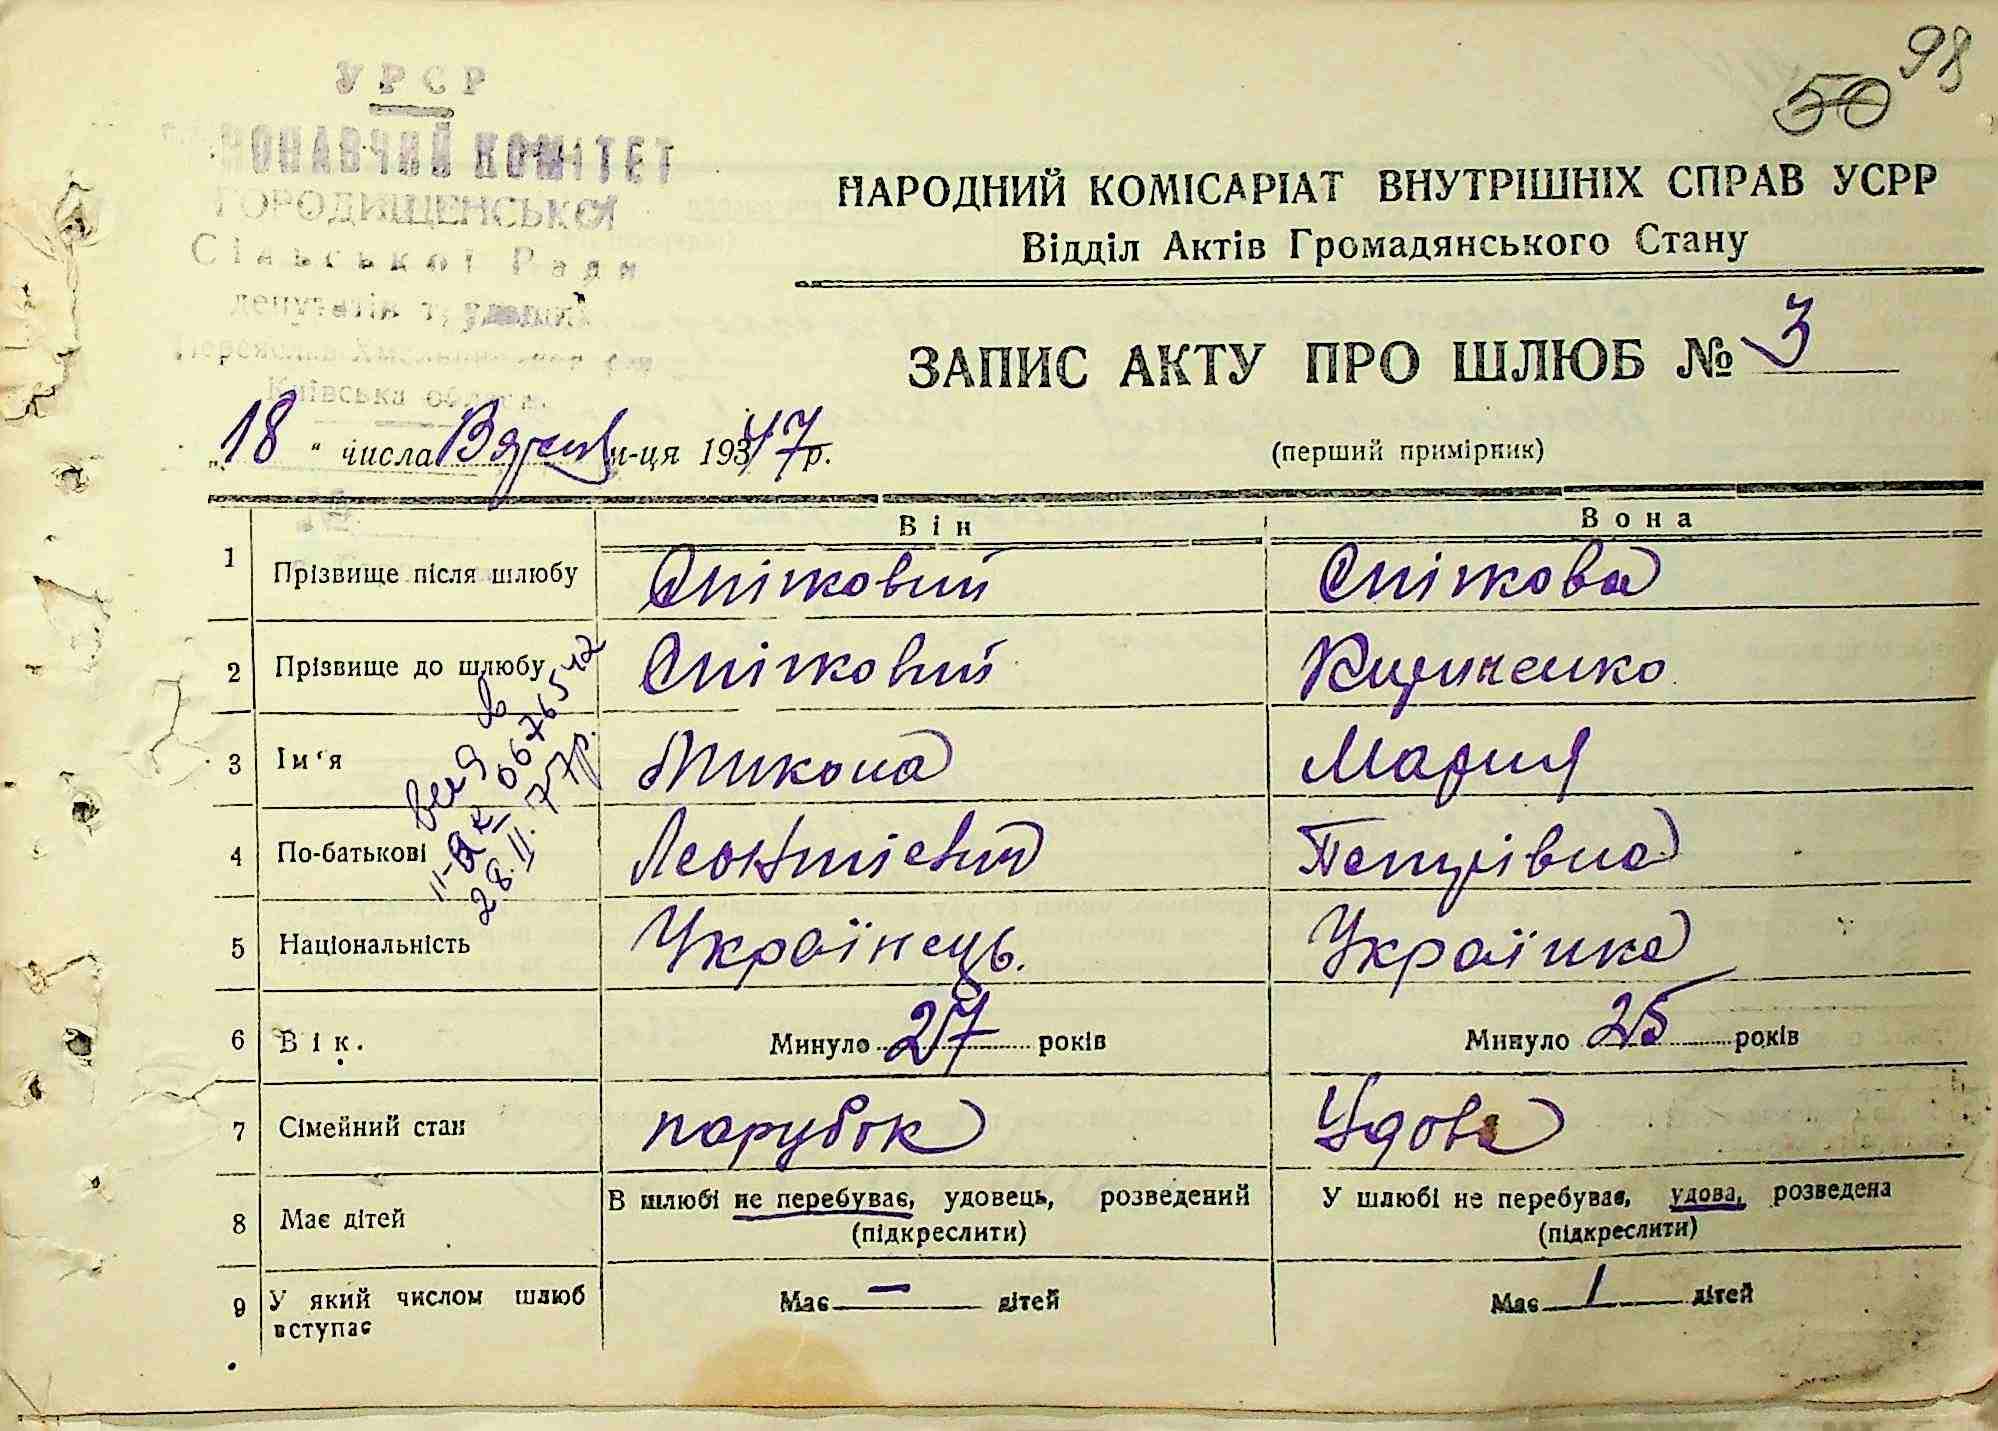 98
50
УРСР
КОМІТЕТ
ГОРОДИЩЕНСЬКОЇ
Сільської Ради
депутатів трудящих
Київська область
НАРОДНИЙ КОМІСАРІАТ ВНУТРІШНІХ СПРАВ УСРР
Відділ Актів Громадянського Стану
ЗАПИС АКТУ ПРО ШЛЮБ № 3
(перший примірник)
„18“ числа м-ця 1947р.
Він Вона
1 Прізвище після шлюбу Снітковий Сніткова
2 Прізвище до шлюбу Снітковий Кириченко
3 Ім‘я Микола Мария
4 По-батькові Леонтієвич Петрівна
5 Національність Українець. Українка
6 Вік. Минуло 27 років Минуло 25 років
7 Сімейний стан парубок Удова
8 Має дітей В шлюбі не перебуває, удовець, розведений У шлюбі не перебуває, удова, розведена
(підкреслити) (підкреслити)
9 У який числом шлюб вступає Має — дітей Має 1 дітей
28.II.77р.